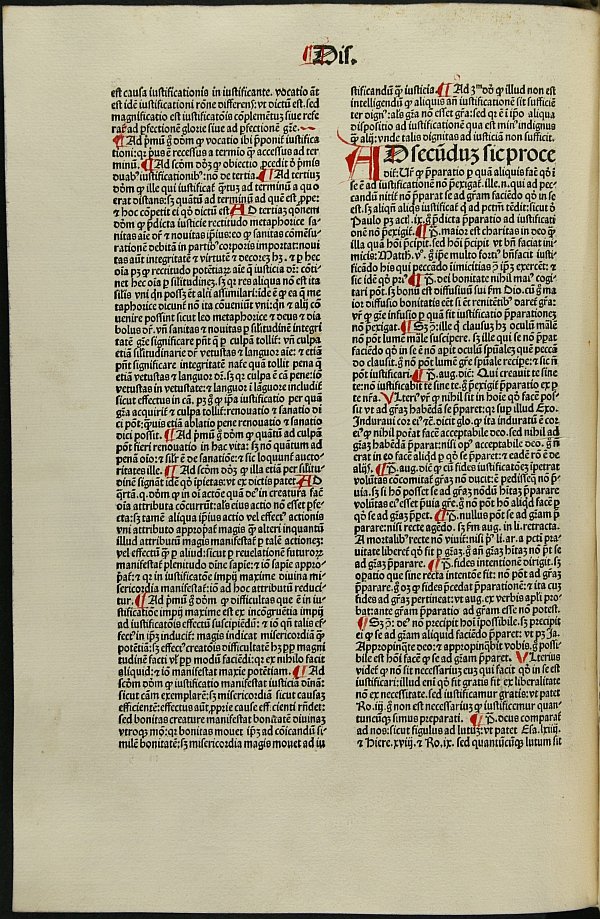 ¶ Dis.
est causa iustificationis in iustificante. vocatio aūt
est idē iustificationi rōne differens: vt dictū est. sed
magnificatio est iustificatōis cōplemētū: siue refe
rat̄ ad pfectionē glorie siue ad pfectionē grē.
¶ Ad pmū g̊ dōm ꝙ vocatio ibi pōnit̄ iustifica
tioni: q: pus ē recessus a termio ꝙ accessus ad ter
minū. ¶ Ad scōm dōꝫ ꝙ obiectio pcedit ō pmis
duab iustificationib: nō de tertia. ¶ Ad tertiuꝫ
dōm ꝙ ille qui iustificat̄ ad terminū a quo
erat distans: sꝫ quātū ad terminū ad quē est
⁊ hoc cōpetit ei qō dictū est. Ad tertiaꝫ qōnem
dōm ꝙ pdicta iusticie rectitudo metaphorice sa
nitas aīe dr̄ ⁊ nouitas ipius: eo ꝙ sanitas cōmēsu
rationē debitā in partib corporis importat: noui
tas aūt integritatē ⁊ virtutē ⁊ decorē hꝫ. ⁊ p hec
oīa pꝫ ꝙ rectitudo potētiaꝝ aīe q iusticia dr̄: cōti
net hec oīa p silitudinē. sꝫ q: res aliqua nō est ita
silis vni qn possꝫ et alij assimilari: idē ꝙ ea q me
taphorice dicunt̄ nō ita cōueniūt vni: qn ⁊ alij cō
uenire possint sicut leo metaphorice ⁊ deus ⁊ dia
bolus dr̄. vn sanitas ⁊ nouitas p silitudinē integri
tatē grē significare pnt q p culpā tollit̄: vn culpa
etiā silitudinarie dr̄ vetustas ⁊ languor aīe: ⁊ etiā
pnt significare integritatē nature quā tollit pena q
etiā vetustas ⁊ languor dr̄. sꝫ q: culpa ē cā pene: iō
vetustas in vetustate: ⁊ languor ī lāguore includit̄
sicut effectus in cā. pꝫ g̊ ꝙ ipa iustificatio per quā
grā acquirit̄ ⁊ culpa tollit̄: renouatio ⁊ sanatio di
ci pōt: quis etiā ablatio pene renouatio ⁊ sanatio
dici possit. ¶ Ad pmū g̊ dōm ꝙ quātū ad culpā
pōt fieri renouatio in hac vita: sꝫ nō quātum ad
penā oīo: ⁊ silr ē de sanatiōe: ⁊ sic loquunt̄ aucto
ritates ille. ¶ Ad scōm dōꝫ ꝙ illa etiā per silitu
dinē signāt idē qō ipietas: vt ex dictis patet. Ad
qrtā. q. dōm ꝙ in oī actōe quā de in creatura fac̄
oīa attributa cōcurrūt: als eius actio nō esset pfe
cta: sꝫ tamē aliqua ipius actio vel effect actionis
vni attributo appropat̄ magis ꝙ alteri inquantū
illud attributū magis manifestat̄ p talē actionez:
vel effectū ꝙ p aliud: sicut p reuelationē futuroꝝ
manifestat̄ plenitudo diuine sapie: ⁊ iō sapie appro
pat̄: ⁊ q: in iustificatōe impij maxime diuina mi
sericordia manifestat̄: iō ad hoc attributū reduci
tur. ¶ Ad pmū g̊ dōm ꝙ difficultas que ē in iu
stificatiōe impij maxime est ex incōgruētia impij
ad iustificatōis effectū suscipiēdū: ⁊ iō qn talis ef
fect in ipꝫ inducit̄: magis indicat misericordiā ꝙ
potētiā: sꝫ effect creatōis difficultatē hꝫ pp magni
tudinē facti vl pp modū faciēdi: q: ex nihilo facit
aliquid: ⁊ iō manifestat maxie potētiam. ¶ Ad
scōm dōm ꝙ iustificatio manifestat iusticiā diuinā:
sicut cām exemplarē: sꝫ misericordiā sicut causaꝫ
efficientē: effectus aūt ppie cause efficienti rndet:
sed bonitas creature manifestat bonitatē diuinaꝫ
vtroꝙ mō: q: bonitas mouet ipꝫ ad cōicandū si
milē bonitatē: sꝫ misericordia magis mouet ad iu
stificandū ꝙ iusticia. ¶ Ad 3m dō ꝙ illud non est
intelligendū ꝙ aliquis añ iustificationē sit sufficiē
ter dign: als grā nō esset grā: sed q: ē ī ipo aliqua
dispositio ad iustificationē qua est min indignus
ꝙ alij: vnde talis dignitas ad iusticiā non sufficit.
AD secūduꝫ sic proce
dit̄. Ur ꝙ pparatio p quā aliquis fac̄ qō ī
se ē ad iustificationē nō pexigat̄. ille. n. qui ad pec
candū nitit̄ nō pparat se ad grām faciēdo qō in se
est. sꝫ aliqn aliqs iustificat̄ q ad pctm tēdit: sicut ō
Paulo pꝫ act. ix. g̊ pdicta pparatio ad iustificati
onē nō pexigit̄. ¶ P. maior est charitas in deo ꝙ
illa quā hoī pcipit. sed hoī pcipit vt bn faciat ini
micis: Matth. v. g̊ ipe multo forti bnfacit iusti
ficādo his qui peccādo inimicitias ꝯ ipꝫ exercēt: ⁊
sic idē qō pri. ¶ P. dei bonitate nihil mai cogi
tari pōt. sꝫ bonū est diffusiuū sui fm Dio. cū g̊ ma
ior diffusio bonitatis eēt si ēt renitētib daret̄ grā:
vr ꝙ gre infusio p quā fit iustificatio pparationeꝫ
nō pexigat. ¶ Sꝫ ꝯ: ille q clausus hꝫ oculū mālē
nō pōt lumē mālē suscipere. sꝫ ille qui se nō ppat
faciēdo qō in se ē nō apit oculū spualeꝫ quē peccā
do clausit. g̊ nō pōt lumē gre spuale recipe: ⁊ sic n̄
pōt iustificari. ¶ P. aug. dic̄: Qui creauit te sine
te: nō iustificabit te sine te. g̊ pexigit̄ pparatio ex p
te nra. Ulteri vr ꝙ nihil sit in hoie qō facē pos
sit vt ad grāꝫ habēdā se pparet: q: sup illud Exo.
Indurauī cor ei ⁊c. dicit glo. ꝙ ita induratū ē cor
ei ꝙ nihil poterat facē acceptabile deo. sed nihil ad
grāꝫ habēdā pparat: nisi op acceptabile deo. g̊ n̄
erat in eo facē aliqd p qō se pparet: ⁊ eadē rō ē de
alijs. ¶ P. aug. dic̄ ꝙ cū fides iustificatōeꝫ ipetrat
volūtas cōcomitat̄ grāꝫ nō ducit: ē pedisseq nō p
uia. sꝫ si hō posset se ad grāꝫ nōdū hitaꝫ pparare
volūtas ei esset puia gre. g̊ nō pōt hō aliqd facē p
qō se ad grāꝫ ppet. ¶ P. nullus pōt se ad grām p
parare: nisi recte agēdo. sꝫ fm aug. in li. retracta.
A mortalib recte nō viuit̄: nisi p li. ar. a pcti pra
uitate liberet̄ qō fit p grāꝫ. g̊ añ grāꝫ hitaꝫ nō pōt se
ad grāꝫ pparare. ¶ P. fides intentionē dirigit. sꝫ
opatio que sine recta intentōe fit: nō pōt ad grāꝫ
pparare. g̊ oꝫ ꝙ fides pcedat pparationē: ⁊ ita cuꝫ
fides ad grāꝫ pertineat: vt aug. ex verbis apli pro
bat: ante grām pparatio ad grām esse nō potest.
¶ Sꝫ ꝯ: de nō precipit hoī ipossibile. sꝫ precipit
ei ꝙ se ad grām aliquid faciēdo pparet: vt pꝫ Ja.
Appropinqte deo: ⁊ appropinqbit vobis. g̊ possi
bile est hoī facē ꝙ se ad grām pparet. Ulterius
videt̄ ꝙ nō sit necessariuꝫ euꝫ qui facit qō in se est
iustificari: illud enī qō fit gratis fit ex liberalitate
nō ex necessitate. sed iustificamur gratis: vt patet
Ro. iij. g̊ non est necessariuꝫ ꝙ iustificemur quan
tuncūꝙ simus preparati. ¶ P. deus comparat̄
ad nos: sicut figulus ad lutuꝫ: vt patet Esa. lxiiij.
⁊ Hiere. xviij. ⁊ Ro. ix. sed quantūcūꝙ lutum sit